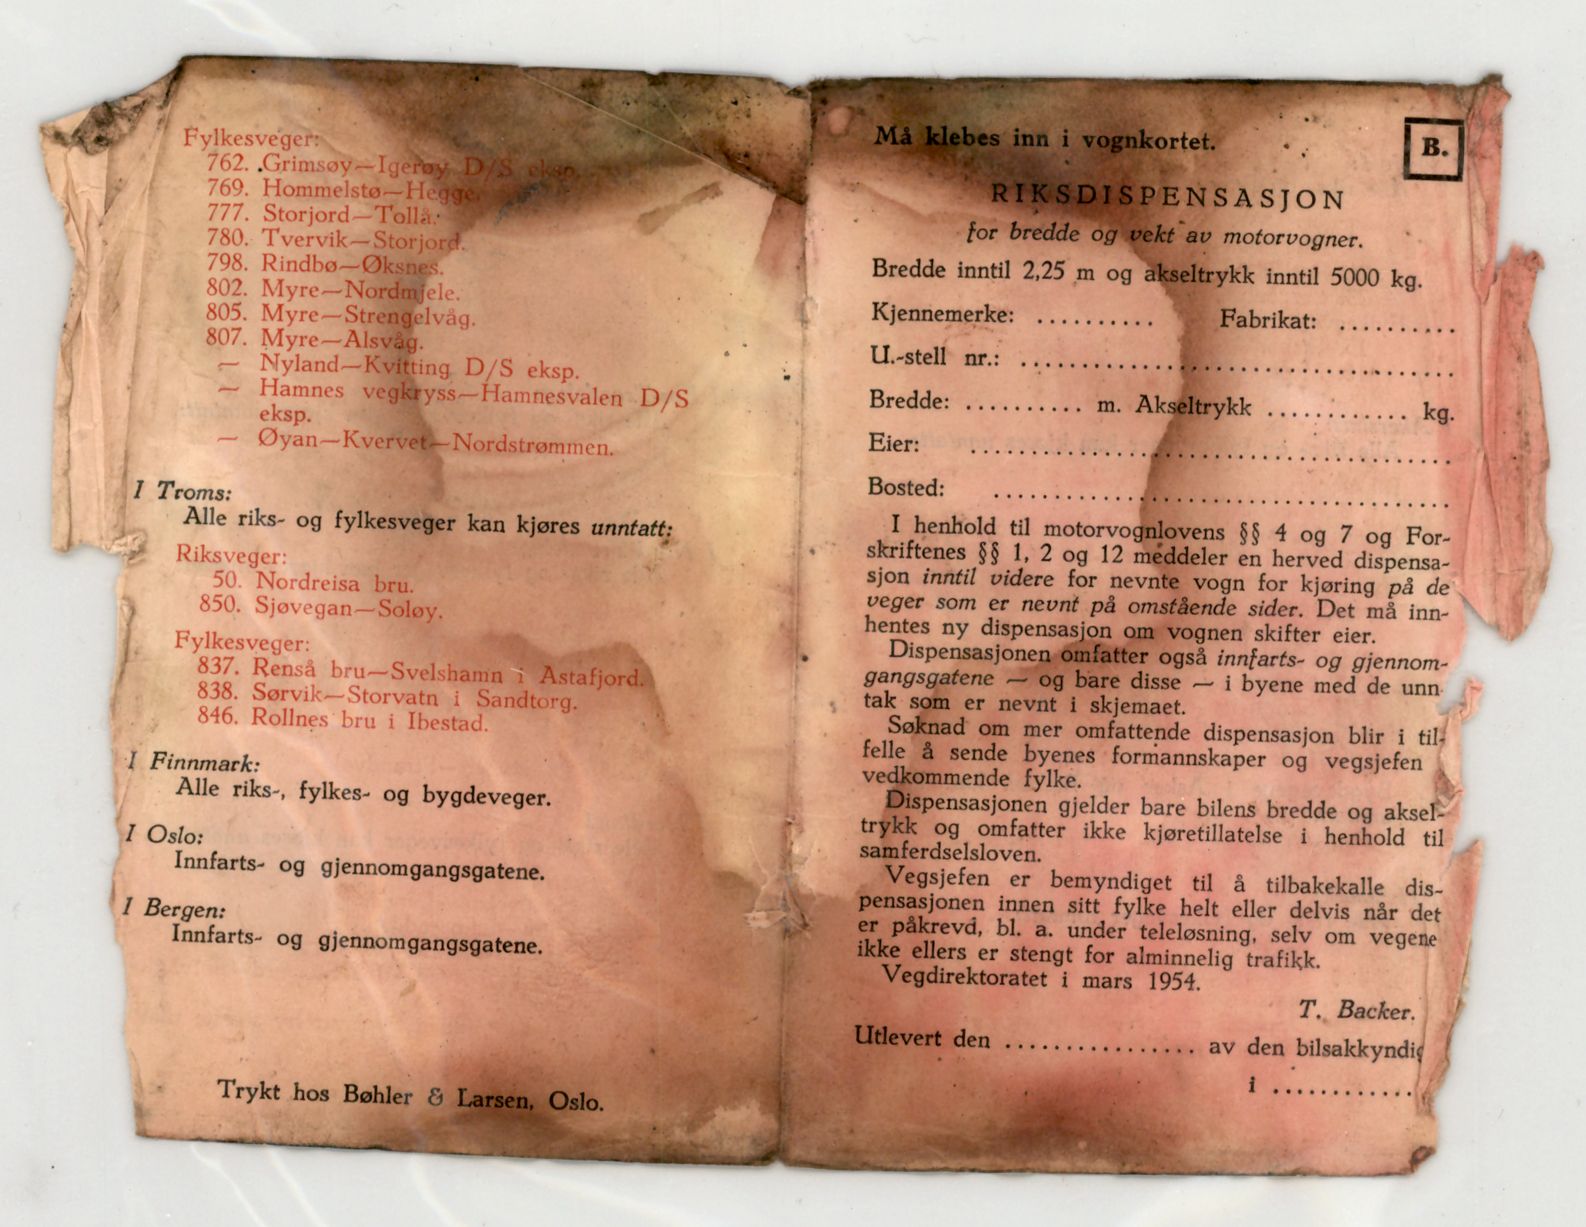 Fylkesveger:
762. Grimsøy—Igerøy D/S eksp.
769. Hommelstø—Hegge.
777. Storjord—Tollå.
780. Tvervik—Storjord.
798. Rindbø—Øksnes.
802. Myre—Nordmjele.
805. Myre—Strengelvåg.
807. Myre—Alsvåg.
— Nyland—Kvitting D/S eksp.
— Hamnes vegkryss—Hamnesvalen D/S
eksp.
— Øyan—Kvervet—Nordstrømmen.
I Troms:
Alle riks- og fylkesveger kan kjøres unntatt:
Riksveger:
50. Nordreisa bru.
850. Sjøvegan—Soløy.
Fylkesveger:
837. Renså bru—Svelshamn i Astafjord.
838. Sørvik—Storvatn i Sandtorg.
846. Rollnes bru i Ibestad.
I Finnmark:
Alle riks-, fylkes- og bygdeveger.
I Oslo:
Innfarts- og gjennomgangsgatene.
I Bergen:
Innfarts- og gjennomgangsgatene.
Trykt hos Bøhler & Larsen, Oslo.
Må klebes inn i vognkortet.
B.
RIKSDISPENSASJON
for bredde og vekt av motorvogner.
Bredde inntil 2,25 m og akseltrykk inntil 5000 kg.
Kjennemerke: .......... Fabrikat: ..........
U.-stell nr.: ....................................
Bredde: .......... m. Akseltrykk ............ kg.
Eier: ........................................
Bosted: ......................................
I henhold til motorvognlovens §§ 4 og 7 og For-
skriftenes §§ 1, 2 og 12 meddeler en herved dispensa-
sjon inntil videre for nevnte vogn for kjøring på de
veger som er nevnt på omstående sider. Det må inn-
hentes ny dispensasjon om vognen skifter eier.
Dispensasjonen omfatter også innfarts- og gjennom-
gangsgatene — og bare disse — i byene med de unn-
tak som er nevnt i skjemaet.
Søknad om mer omfattende dispensasjon blir i til-
felle å sende byenes formannskaper og vegsjefen i
vedkommende fylke.
Dispensasjonen gjelder bare bilens bredde og aksel-
trykk og omfatter ikke kjøretillatelse i henhold til
samferdselsloven.
Vegsjefen er bemyndiget til å tilbakekalle dis-
pensasjonen innen sitt fylke helt eller delvis når det
er påkrevd, bl. a. under teleløsning, selv om vegene
ikke ellers er stengt for alminnelig trafikk.
Vegdirektoratet i mars 1954.
T. Backer.
Utlevert den ................ av den bilsakkyndig
i ............